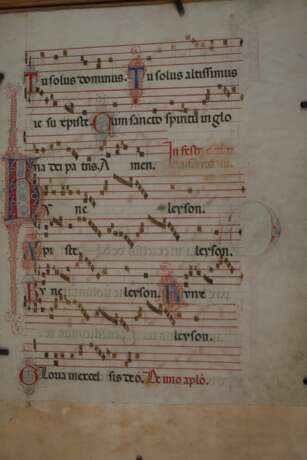 Tu solus dominus. Tu solus altissimus
ie su xpiste. Cum sancto spiritu in glo
In festis
ria dei pa tris. A men.
Ky rie leyson.
Xpi ste leyson.
Ky rie leyson. Kyrie
leyson.
Gloria in excel sis deo. De uno aplo.